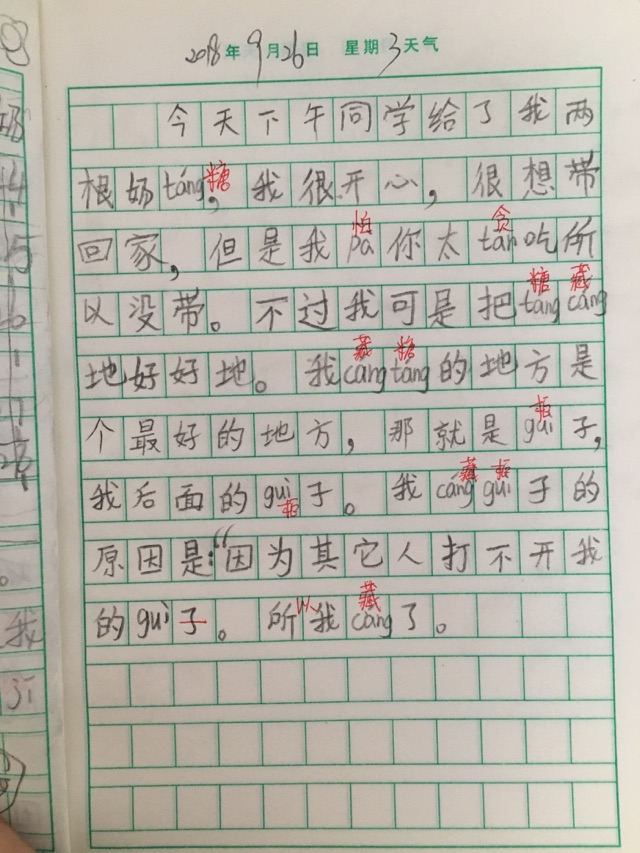 2018年9月26日 星期3天气
今天下午同学给了我两
根奶táng糖,我很开心,很想带
回家,但是我pà怕你太tān贪吃所
以没带。不过我可是把táng糖cáng藏
地好好地。我cáng藏táng糖的地方是
个最好的地方,那就是guì柜子,
我后面的guì柜子。我cáng藏guì柜子的
原因是:“因为其它人打不开我
的guì子。所以我cáng藏了。